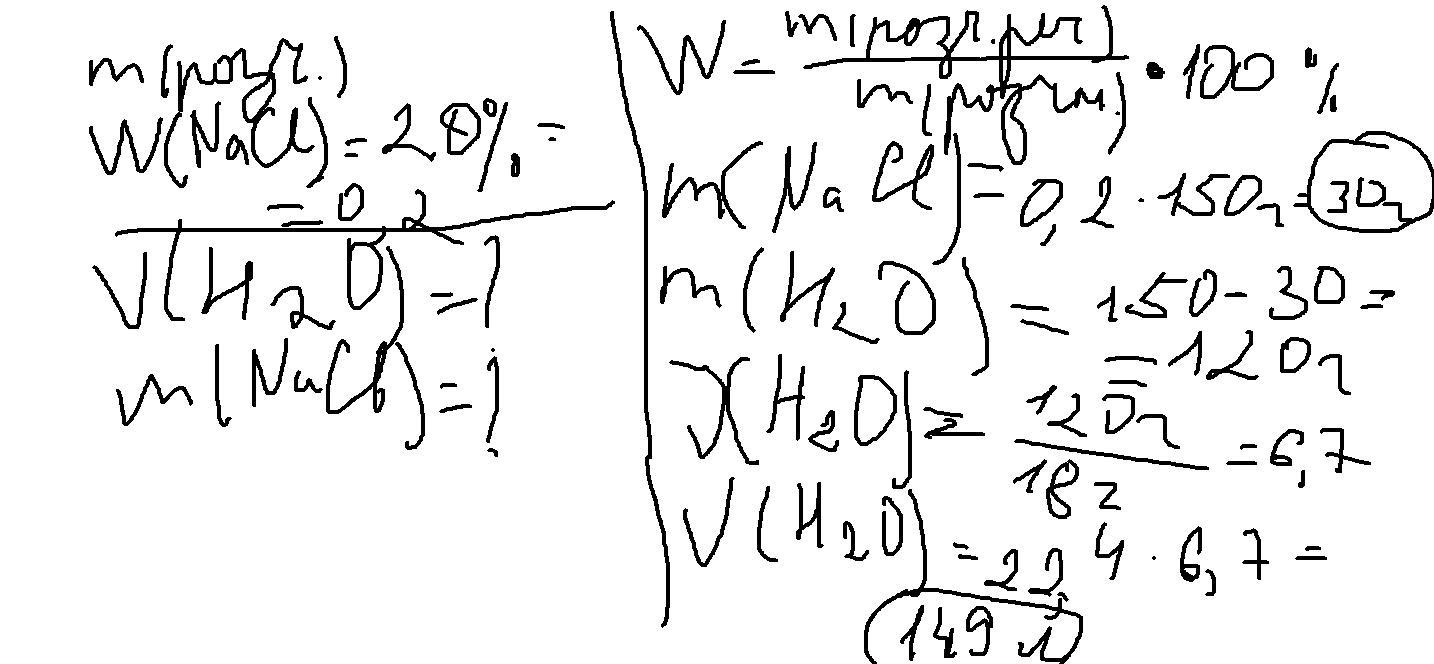 m(розч.)
W(NaCl) = 20% =
= 0,2
V(H₂O) = ?
m(NaCl) = ?
W = m(розч.реч) / m(розчин.) · 100 %
m(NaCl) = 0,2 · 150г = 30г
m(H₂O) = 150 - 30 =
= 120г
ν(H₂O) = 120г / 18г = 6,7
V(H₂O) = 22,4 · 6,7 =
149 л